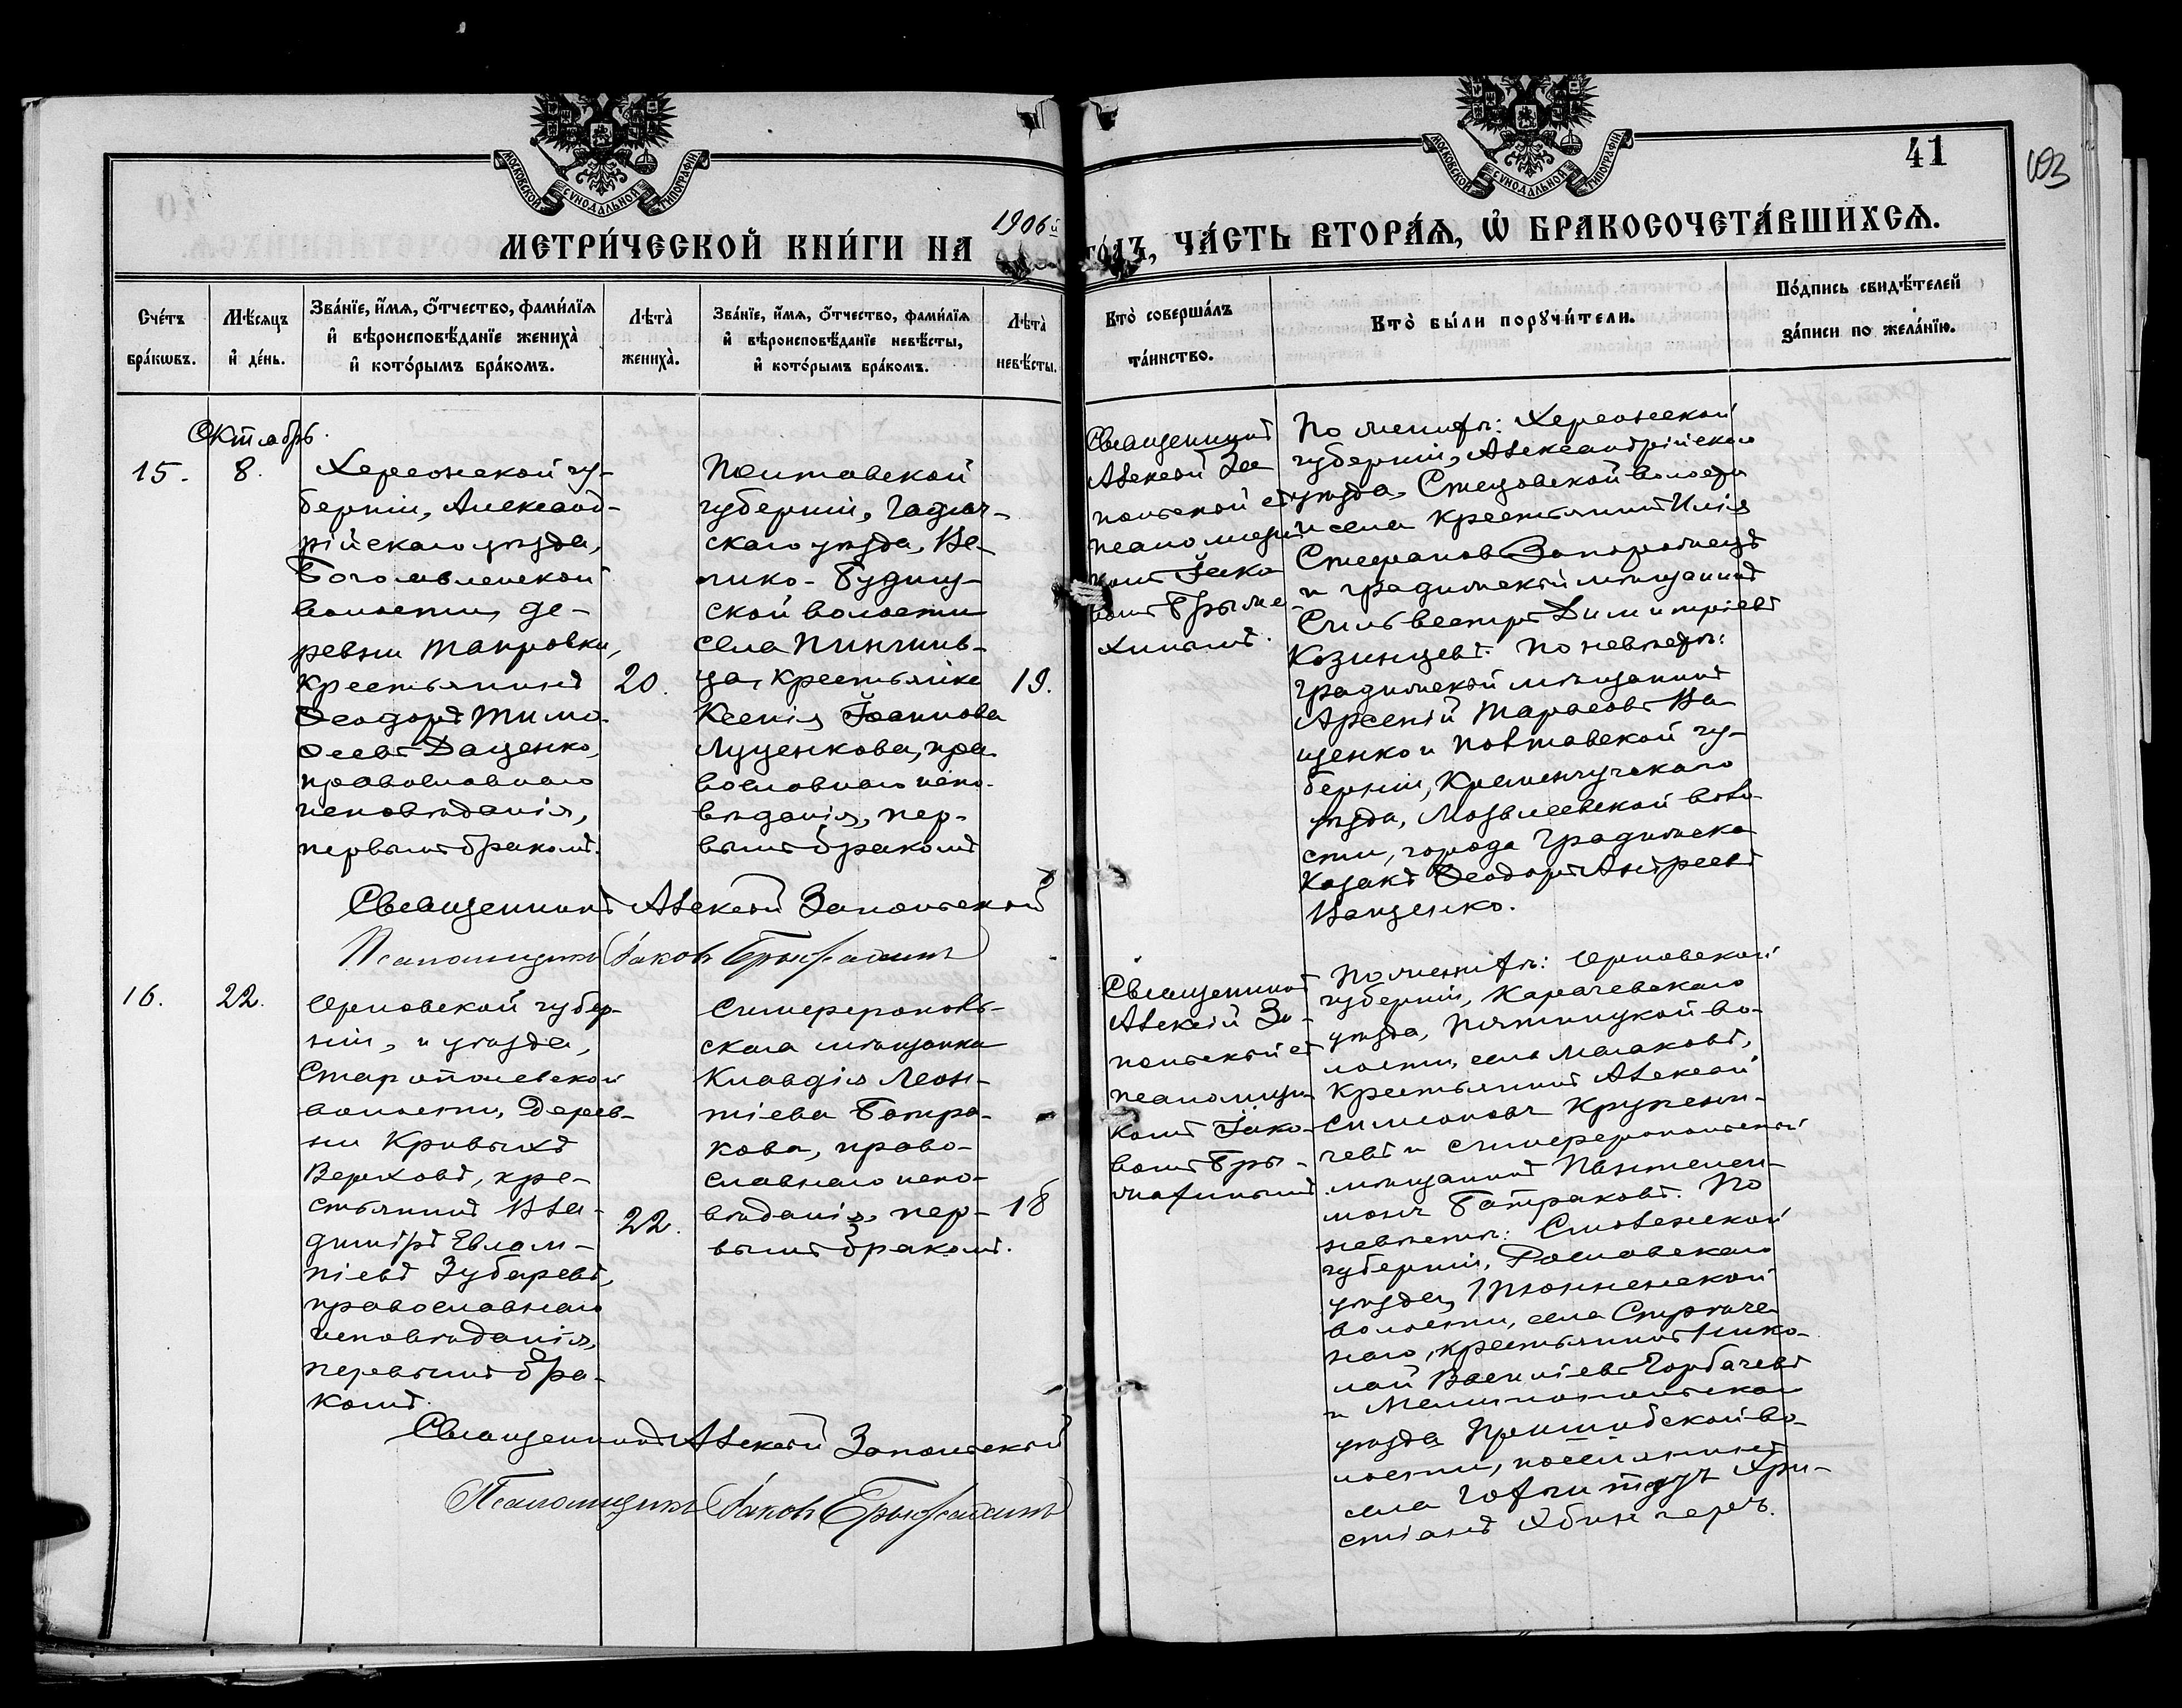 МОСКОВСКОЙ СѴНОДАЛЬНОЙ ТИПОГРАФІИ
МОСКОВСКОЙ СѴНОДАЛЬНОЙ ТИПОГРАФІИ
41
103
МЕТРИ́ЧЕСКОЙ КНИ́ГИ НА 1906й ГО́ДЪ, ЧА́СТЬ ВТОРА́Ѧ, Ѽ БРАКОСОЧЕТА́ВШИХСѦ.
Сче́тъ бра́кѡвъ.
Мѣ́сяцъ и҆ де́нь.
Зва́нїе, и҆́мѧ, ѻ҆́тчество, фами́лїѧ и҆ вѣроисповѣ́данїе жениха̀ и҆ кото́рымъ бра́комъ.
Лѣта̀ жениха̀.
Зва́нїе, и҆́мѧ, ѻ҆́тчество, фами́лїѧ и҆ вѣроисповѣ́данїе невѣ́сты, и҆ кото́рымъ бра́комъ.
Лѣта̀ невѣ́сты.
Кто̀ соверша́лъ та́инство.
Кто̀ бы́ли порꙋчи́тели.
По́дпись свидѣ́телей за́писи по жела́нїю.
Октябрь.
15.
8.
Херсонской гу-
берніи, Александ-
рійскаго уѣзда,
Богоявленской
волости, де-
ревни Таировки,
крестьянинъ
Ѳеодоръ Тимо-
ѳеевъ Даценко,
православнаго
исповѣданія,
первымъ бракомъ.
20.
Полтавской
губерніи, Гадяч-
скаго уѣзда, Ве-
лико-Будищ-
ской волости
села
крестьянка
Ксенія Іоаннова
Луценкова, пра-
вославнаго испо-
вѣданія, пер-
вымъ бракомъ
19.
Священникъ
Алексѣй За-
польской съ
псаломщи-
комъ Іако-
вомъ
По женихѣ: Херсонской
губерніи, Александрійскаго
уѣзда, Стецовской волости
и села крестьянинъ Илія
Стефановъ Запорожецъ
и градижскій мѣщанинъ
Сильвестръ Димитріевъ
Козинцевъ. По невѣстѣ:
градижскій мѣщанинъ
Арсеній Тарасовъ Ва-
щенко и Полтавской гу-
берніи, Кременчугскаго
уѣзда, Мозолеевской воло-
сти, города Градижска
казакъ Ѳеодоръ Андреевъ
Ващенко.
Священникъ Алексѣй Запольской
Псаломщикъ Іаковъ
16.
22.
Орловской губер-
ніи, и уѣзда,
Старопольской
волости, дерев-
ни Кривыхъ
Верховъ, кре-
стьянинъ Вла-
диміръ Евлам-
піевъ Зубаревъ,
православнаго
исповѣданія,
первымъ бра-
комъ.
22.
Симферополь-
скаго мѣщанка
Клавдія Леон-
тіева Батра-
кова, право-
славнаго испо-
вѣданія, пер-
вымъ бракомъ.
18
Священникъ
Алексѣй За-
польскій съ
псаломщи-
комъ Іако-
вомъ
По женихѣ: Орловской
губерніи, Карачевскаго
уѣзда, Пятницкой во-
лости, села Малаховъ,
крестьянинъ Алексѣй
Симоновъ
и симферопольскій
мѣщанинъ Пантелеи-
монъ Батраковъ. По
невѣстѣ: Смоленской
губерніи, Рославскаго
уѣзда,
волости, села
крестьянинъ Нико-
лай Василіевъ Горбачевъ
и Мелитопольскаго
уѣзда Пришибской во-
лости, поселянинъ
села Гофнунгталь Хри-
стіанъ
Священникъ Алексѣй Запольскій
Псаломщикъ Іаковъ